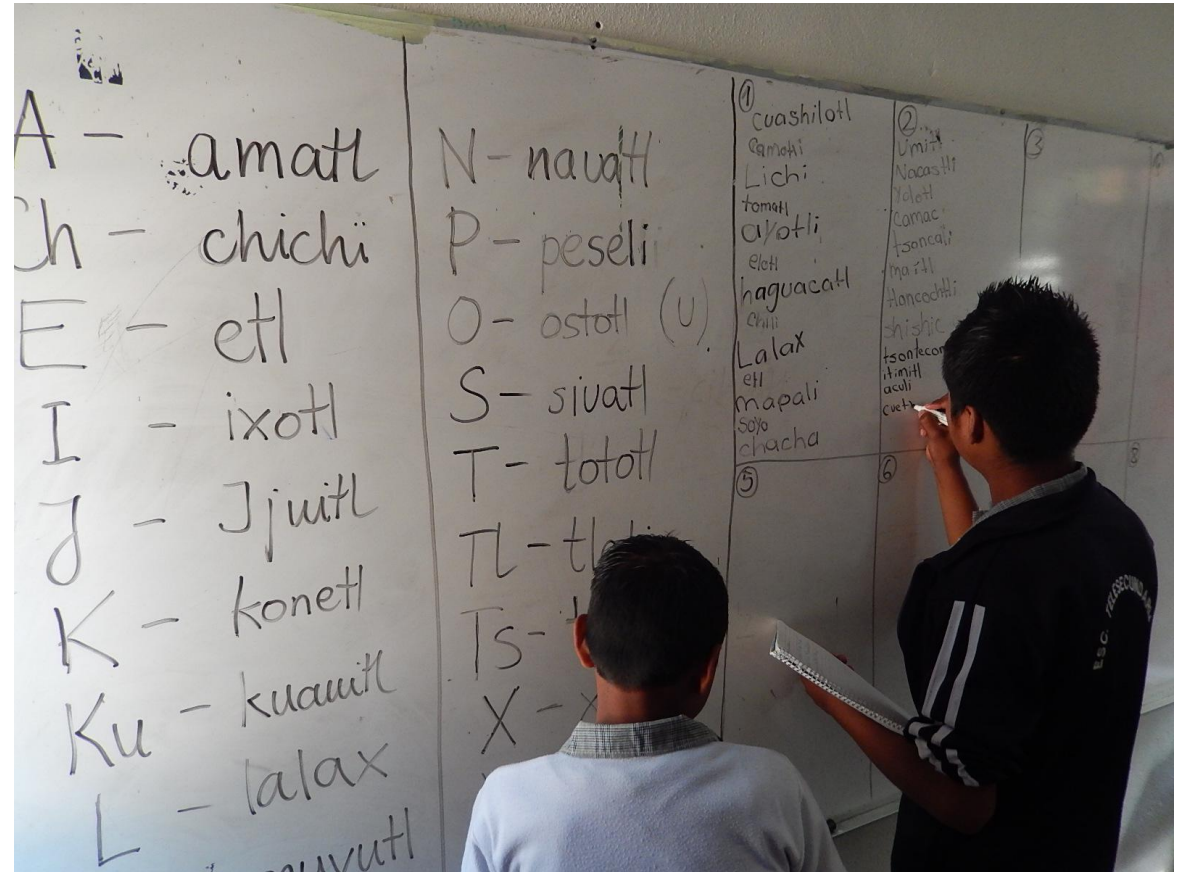 A - amatl
Ch - chichi
E - etl
I - ixotl
J - Jjuitl
K - konetl
Ku - kuauitl
L - lalax
N - nauatl
P - peseli
O - ostotl (U)
S - siuatl
T - tototl
Tl -
Ts -
X -
①
cuashilotl
camohi
Lichi
tomatl
ayotli
elotl
haguacatl
chili
Lalax
etl
mapali
soyo
chacha
②
Umitl
Nacastli
Yolotl
camac
tsoncali
maitl
tlancochtli
shishic
tsontecon
itimitl
aculi
③
⑤
⑥
⑧
ESC. TELESECUNDARIA